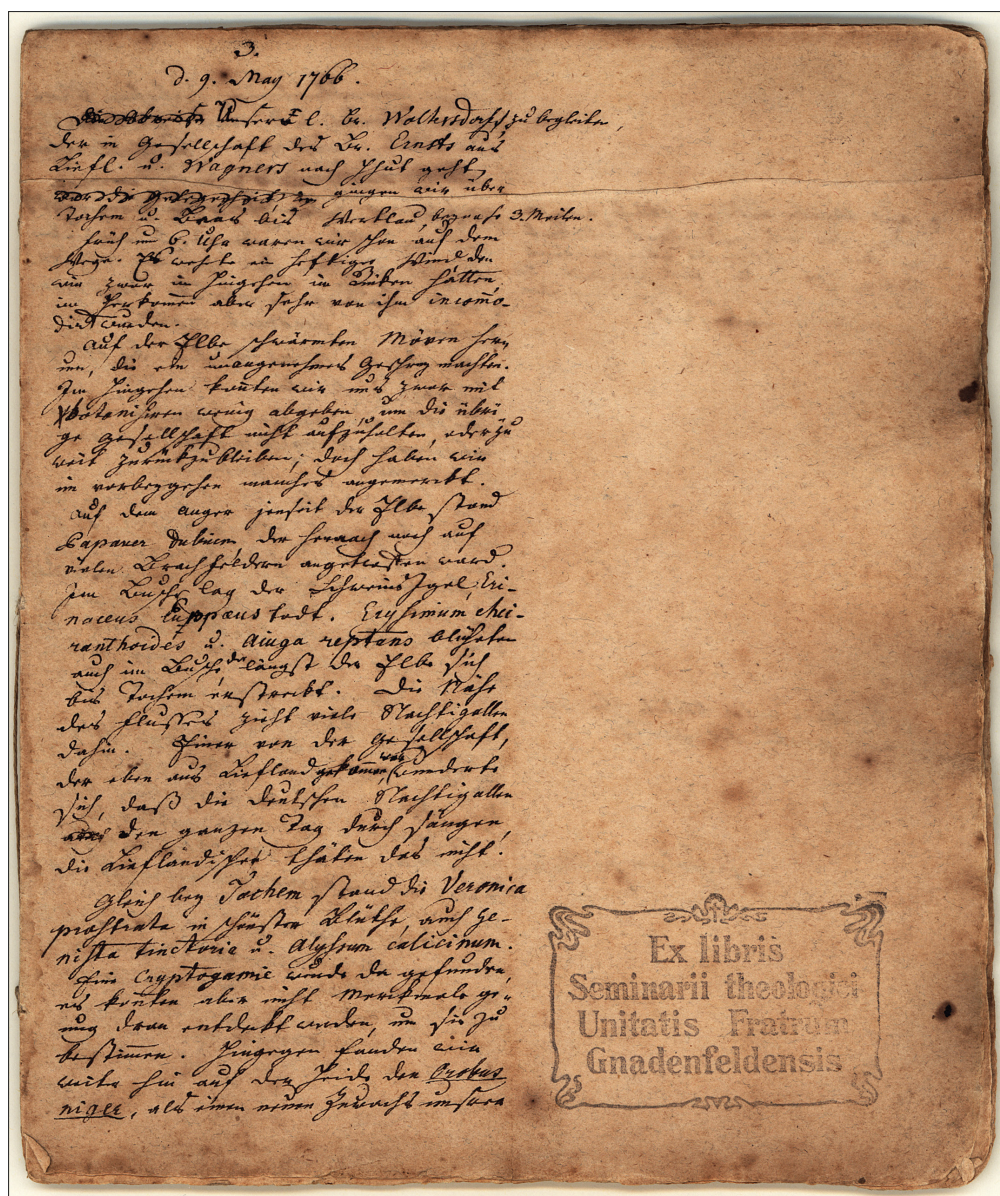 3.
d. 9. May 1766.
Unsern l. Br. Woltersdorf zu begleiten,
der in Gesellschaft des Br. Ernsts aus
Liefl. u. Wagners nach geht,
gingen wir über
Tochem u. bis Werklau, 3. Meilen.
Früh um 6. Uhr waren wir schon auf dem
Wege. Es wehte ein heftiger Wind den
wir zwar im Hingehen im Rüken hatten,
im Herkom̅en aber sehr von ihm incom̅o-
dirt wurden.
Auf der Elbe schwärmten Möven her-
um, die ein unangenehmes Geschrey machten.
Im Hingehen kon̅ten wir uns zwar mit
botanisiren wenig abgeben, um die übri
ge Gesellschaft nicht aufzuhalten, oder zu
weit zurückzubleiben; doch haben wir
im vorbeygehen manches angemerkt.
Auf dem Anger jenseit der Elbe stand
Papaver dubium der hernach noch auf
vielen Brachfeldern angetroffen ward.
Im Busche lag der SchweinsIgel, Eri-
naceus Europæus todt. Erysimum chei-
ranthoides u. Aiuga reptans blüheten
auch im Busche der längst der Elbe sich
bis Tochem erstreckt. Die Nähe
des Flusses zieht viele Nachtigallen
dahin. Einer von der Gesellschaft,
der eben aus Liefland gekom̅en war, wunderte
sich, daß die deutschen Nachtigallen
den ganzen Tag durch sängen,
die Liefländischen thäten das nicht.
Gleich bey Tochem stand die Veronica
prostrata in schönster Blüthe, auch Ge-
nista tinctoria u. Alyssum calicinum.
Eine Cryptogamie wurde da gefunden,
es konten aber nicht Merkmale ge-
nug dran entdekt werden, um sie zu
bestim̅en. Hingegen fanden wir
weiter hin auf der Heide den Orobus
niger, als einen neuen Zuwachs unsrer
Ex libris
Seminarii theologici
Unitatis Fratrum
Gnadenfeldensis